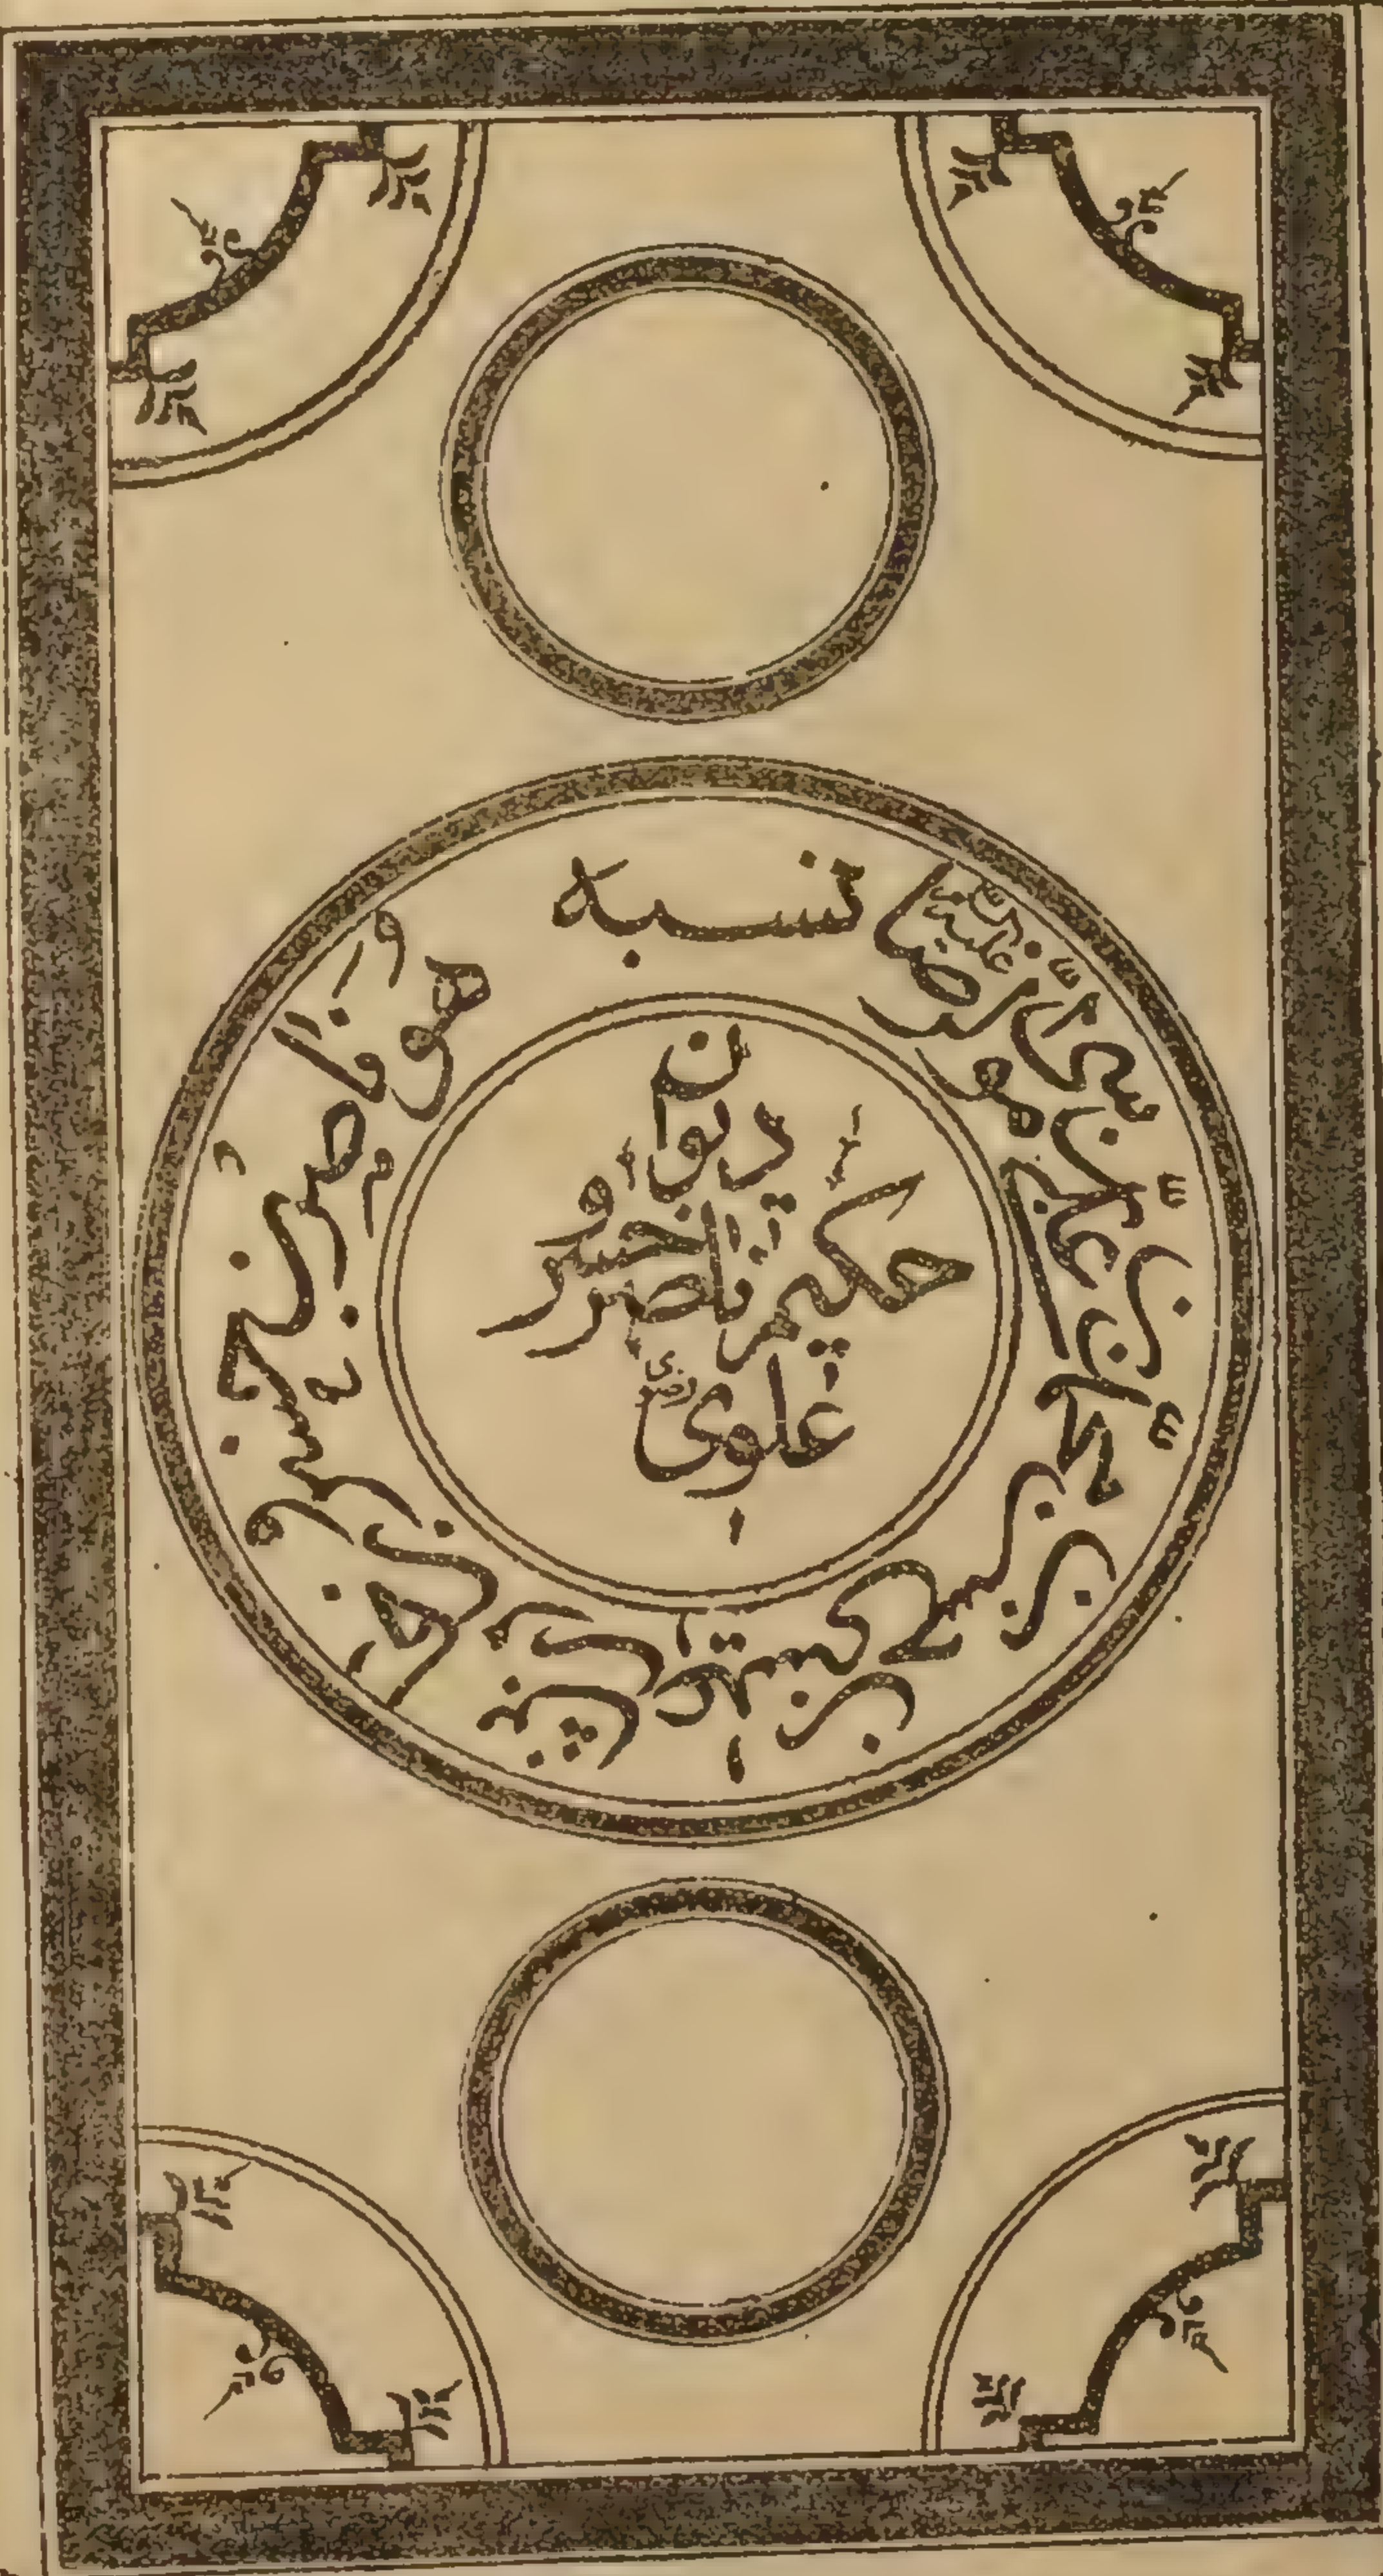 دیوان
حکیم ناصر خسرو
علوی
نسبه
هو ناصر بن خسرو بن الحارث بن عیسی بن حسن بن محمد بن علی بن موسی الرضا علیه